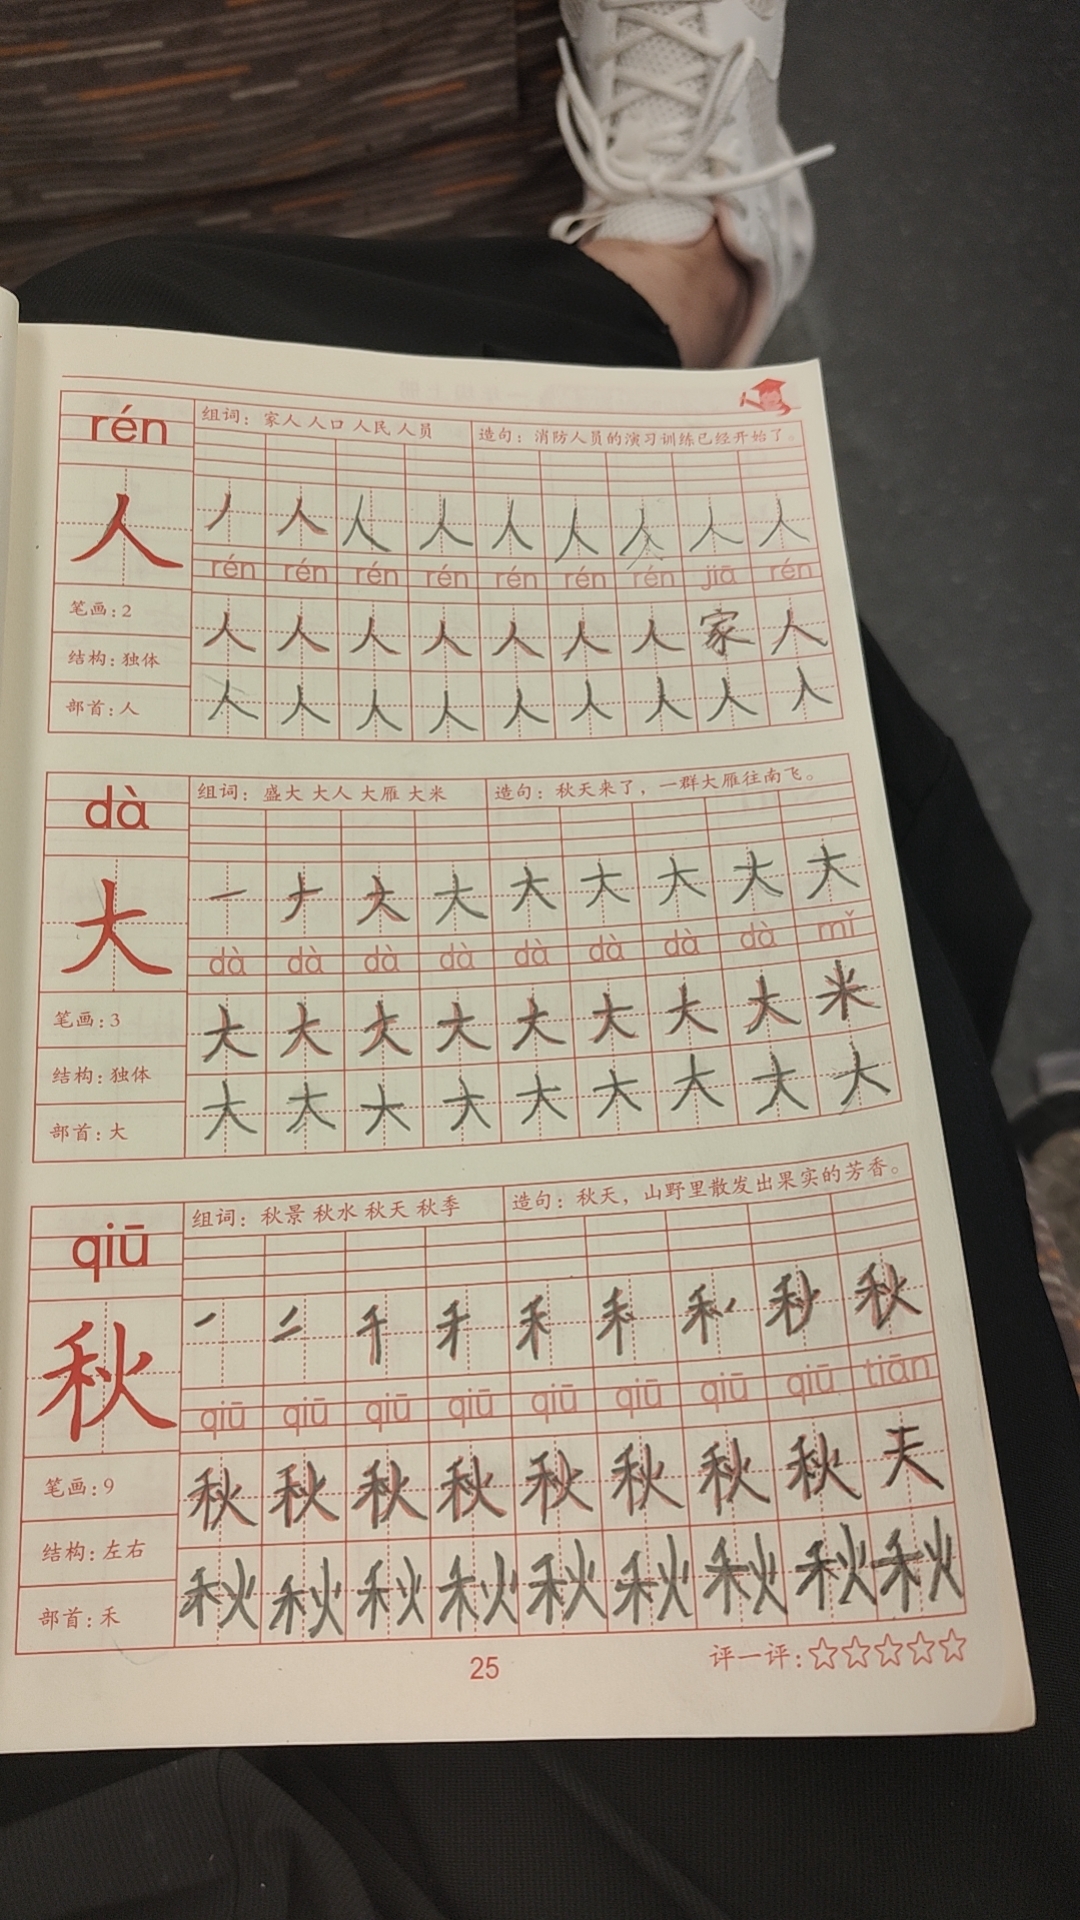 rén
组词：家人 人口 人民 人员
造句：消防人员的演习训练已经开始了。
人
丿 人 人 人 人 人 人 人 人
rén rén rén rén rén rén rén jiā rén
人 人 人 人 人 人 人 家 人
人 人 人 人 人 人 人 人 人
笔画：2
结构：独体
部首：人
dà
组词：盛大 大人 大雁 大米
造句：秋天来了，一群大雁往南飞。
大
一 ナ 大 大 大 大 大 大 大
dà dà dà dà dà dà dà dà mǐ
大 大 大 大 大 大 大 大 米
大 大 大 大 大 大 大 大 大
笔画：3
结构：独体
部首：大
qiū
组词：秋景 秋水 秋天 秋季
造句：秋天，山野里散发出果实的芳香。
秋
秋
qiū qiū qiū qiū qiū qiū qiū qiū tiān
秋 秋 秋 秋 秋 秋 秋 秋 天
秋 秋 秋 秋 秋 秋 秋 秋 秋
笔画：9
结构：左右
部首：禾
25
评一评：☆☆☆☆☆